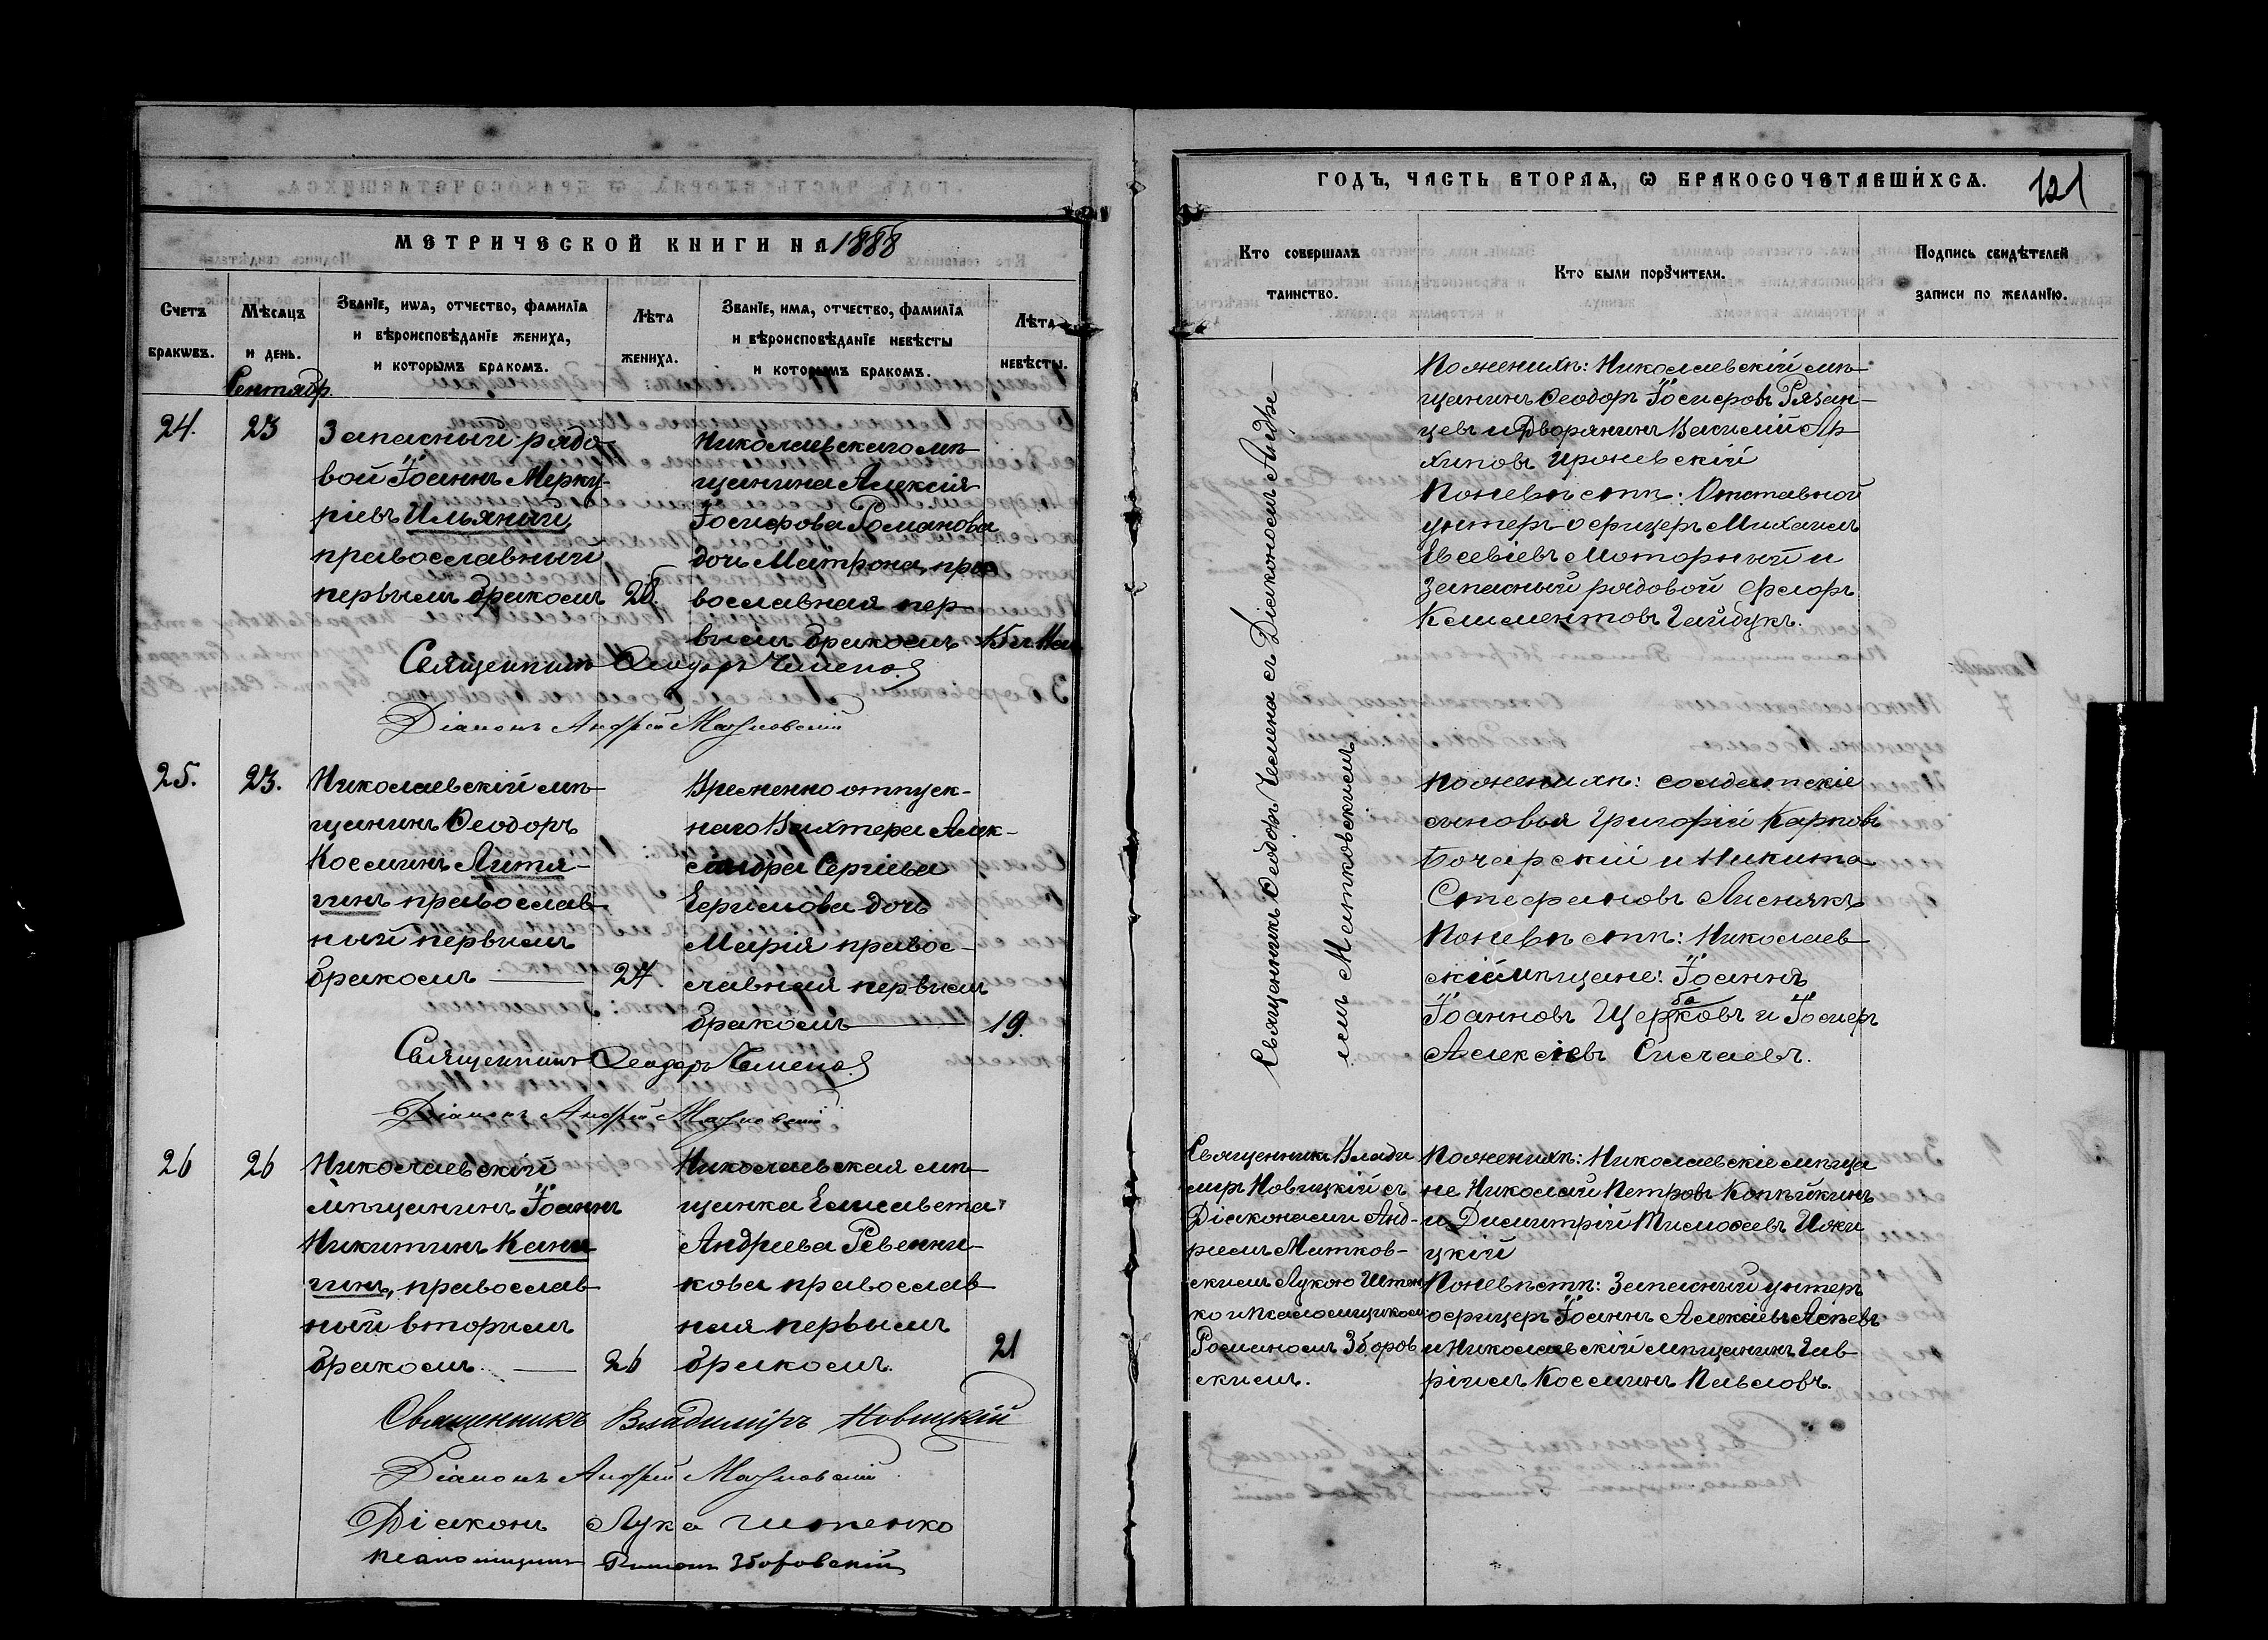 МЕТРИЧЕСКОЙ КНИГИ НА 1888
Счетъ браковъ.
Мѣсяцъ и день.
Званіе, имя, отчество, фамилія
и вѣроисповѣданіе жениха,
и которымъ бракомъ.
Лѣта жениха.
Званіе, имя, отчество, фамилія
и вѣроисповѣданіе невѣсты
и которымъ бракомъ.
Лѣта невѣсты.
Сентябр.
24.
23
Запасный рядо-
вой Іоаннъ Мерку-
ріевъ Ильяный,
православный
первымъ бракомъ
Николаевскаго мѣ-
щанина Алексія
Іосифова Романова
дочь Матрона, пра-
вославная пер-
вымъ бракомъ
Священникъ Ѳеодоръ Чемена
Діаконъ Андрей Матковскій
25.
23.
Николаевскій мѣ-
щанинъ Ѳеодоръ
Косминъ Литя-
гинъ православ-
ный первымъ
бракомъ
24
Временно отпуск-
наго Вахтера Алек-
сандра Сергіева
Ермилова дочь
Марія правос-
лавная первымъ
бракомъ
19.
Священникъ Ѳеодоръ Чемена
Діаконъ Андрей Матковскій
26
26
Николаевскій
мѣщанинъ Іоаннъ
Никитинъ Кани-
гинъ, православ-
ный вторымъ
бракомъ.
26
Николаевская мѣ-
щанка Елисавета
Андреева Ревенни-
кова православ-
ная первымъ
бракомъ.
21
Священникъ Владиміръ Новицкій
Діаконъ Андрей Матковскій
Діаконъ Лука Штенко
Псаломщикъ Романъ Зборовскій
ГОДЪ, ЧАСТЬ ВТОРАЯ, Ѡ БРАКОСОЧЕТАВШИХСЯ.
121
Кто совершалъ таинство.
Кто были поручители.
Подпись свидѣтелей
записи по желанію.
Священникъ Ѳеодоръ Чемена съ Діакономъ Андре-
емъ Матковскимъ
По женихѣ: Николаевскій мѣ-
щанинъ Ѳеодоръ Іосифовъ Рязан-
цевъ и Дворянинъ Василій Ар-
хиповъ
По невѣстѣ: Отставной
унтеръ-офицеръ Михаилъ
Евсевіевъ Моторный и
запасный рядовой Флоръ
Климентовъ Гайдукъ.
По женихѣ: солдатскіе
сыновья Григорій Карповъ
Бочарскій и Никита
Стефановъ Лиснякъ
По невѣстѣ: Николаев-
скіе мѣщане: Іоаннъ
Іоанновъ Щербаковъ и Іосифъ
Алексѣевъ Сысчаевъ.
Священникъ Влади-
миръ Новицкій съ
Діаконами Анд-
реемъ Матков-
скимъ Лукою Штен-
ко и псаломщикомъ
Романомъ Зборов-
скимъ.
По женихѣ: Николаевскіе мѣща-
не Николай Петровъ Копѣйкинъ
и Димитрій Тимоѳеевъ
По невѣстѣ: Запасный унтеръ
офицеръ Іоаннъ Алексіевъ
и Николаевскій мѣщанинъ Гав-
ріилъ Косминъ Павловъ.